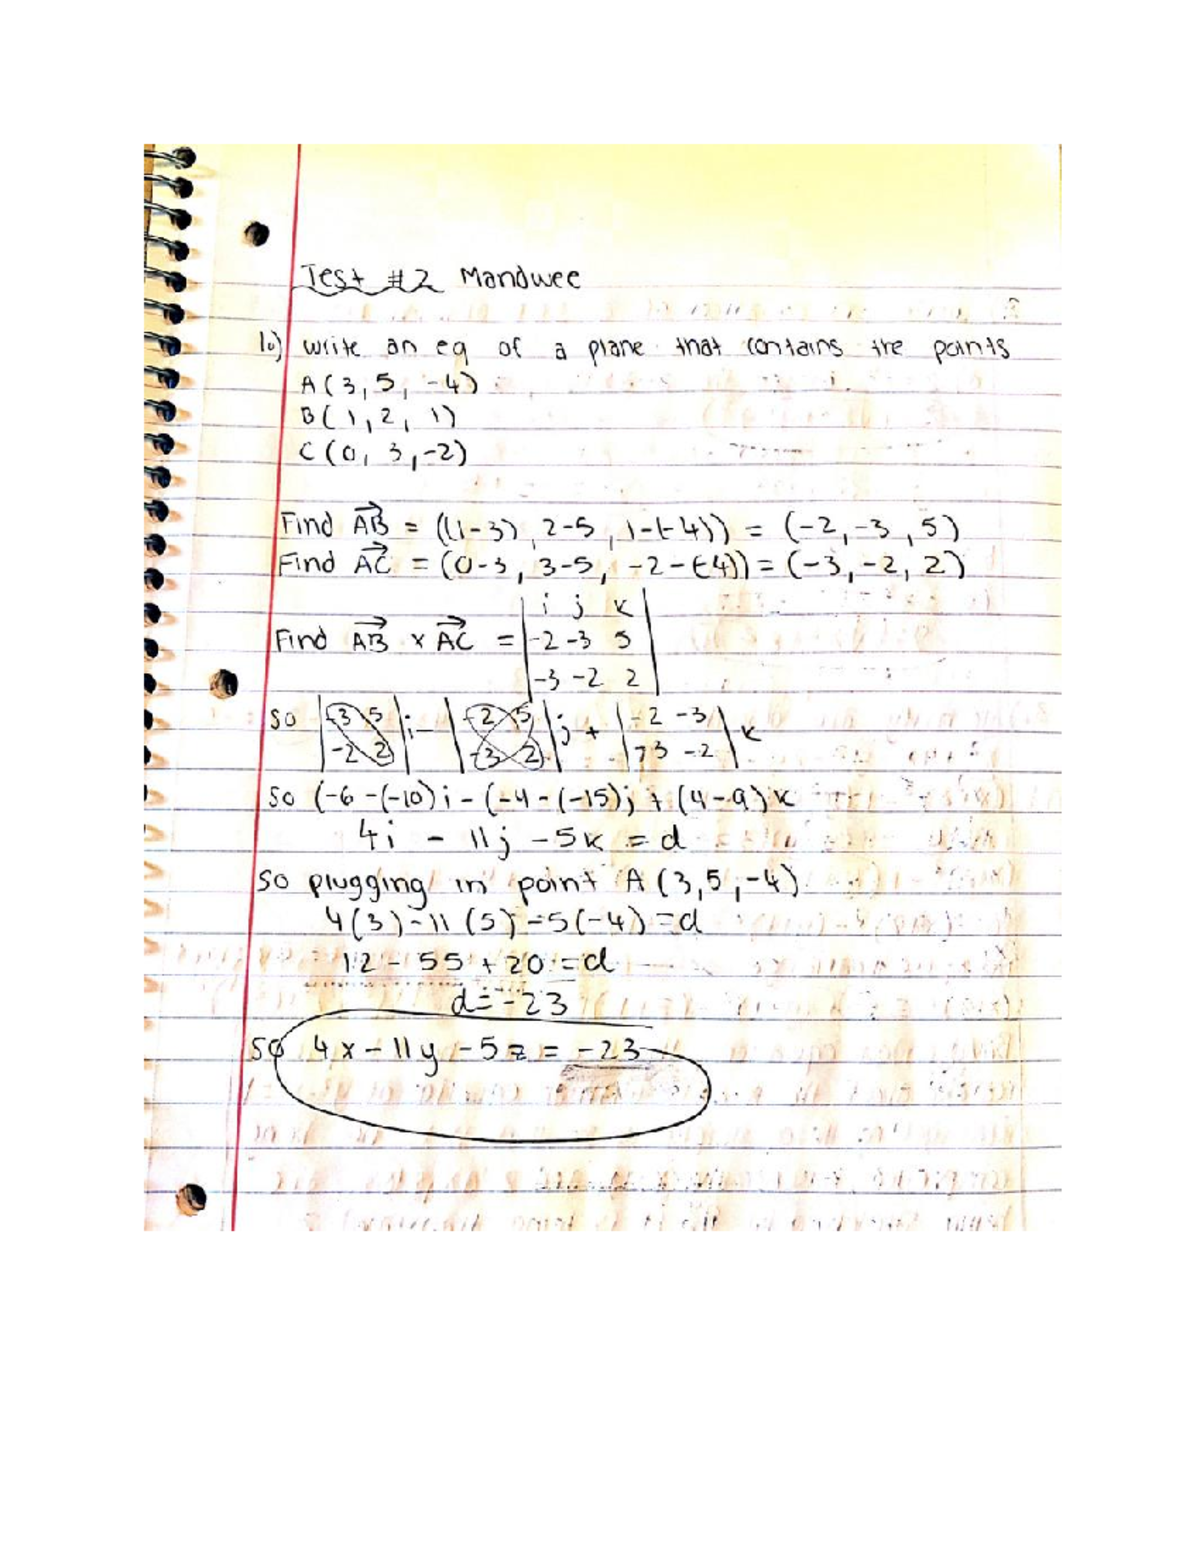 Test #2 Mandwee
10) write an eq of a plane that contains the points
A(3, 5, -4)
B(1, 2, 1)
C(0, 3, -2)
Find AB = ((1-3), 2-5, 1-(-4)) = (-2, -3, 5)
Find AC = (0-3, 3-5, -2-(-4)) = (-3, -2, 2)
i j k
Find AB x AC = -2 -3 5
-3 -2 2
So |-3 5| i - |-2 5| j + |-2 -3| k
|-2 2| |-3 2| |-3 -2|
So (-6-(-10)i - (-4-(-15)j + (4-9)k
4i - 11j - 5k = d
So plugging in point A(3,5,-4)
4(3)-11(5)-5(-4)=d
12 - 55 + 20 = d
d = -23
So 4x - 11y - 5z = -23